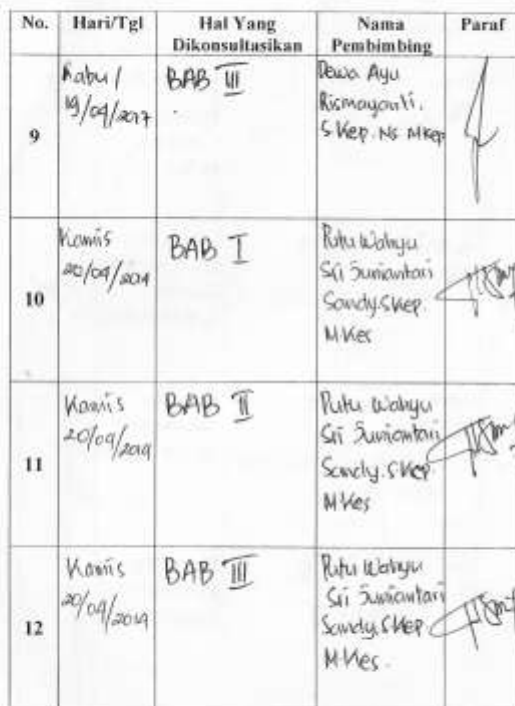 No. Hari/Tgl Hal Yang Dikonsultasikan Nama Pembimbing Paraf
9
Rabu /
19/09/2017
BAB III
Dewa Ayu
Rismayanti,
S.Kep. Ns MKep
10
Kamis
20/09/2019
BAB I
Putu Wahyu
Sri Juniantari
Sandy.SKep.
M.Kes
11
Kamis
20/09/2019
BAB II
Putu Wahyu
Sri Juniantari
Sandy.SKep.
M.Kes
12
Kamis
20/09/2019
BAB III
Putu Wahyu
Sri Juniantari
Sandy.SKep.
M.Kes.